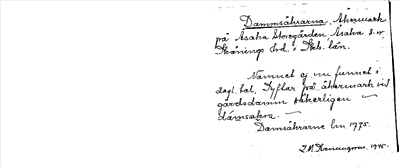 Dammsåkrarna, Åkermark
på Åsaka Storegården Åsaka s:n
Skånings hd. Skb. län.
Namnet ej nu funnet i
dagl. tal. Syftar på åkermark vid
gårdsdamm säkerligen —
dåmsakra —
Damsåkrarne lm. 1775.
1945.